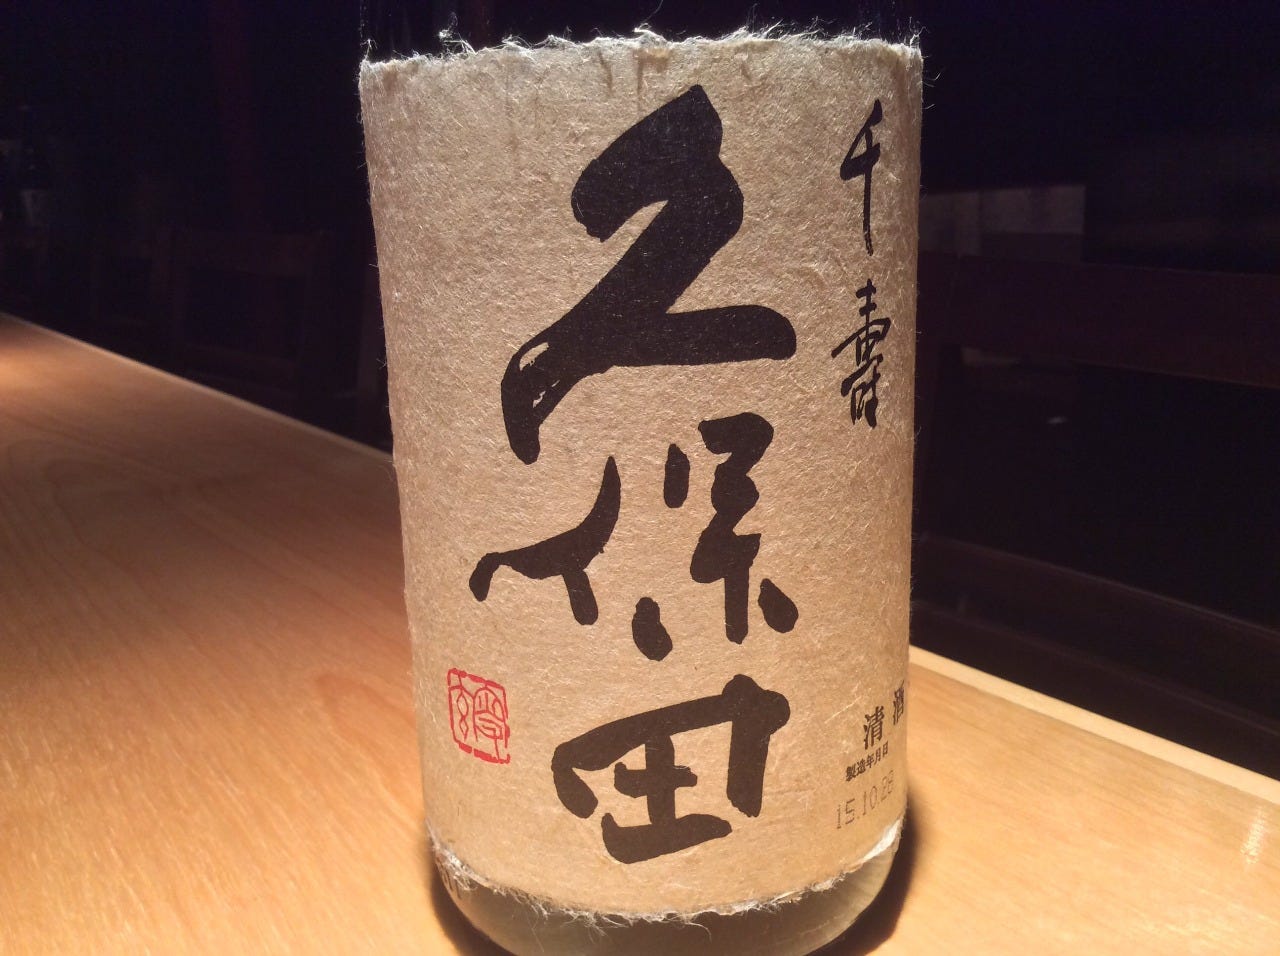 千壽
久保田
清酒
製造年月日
15.10.28